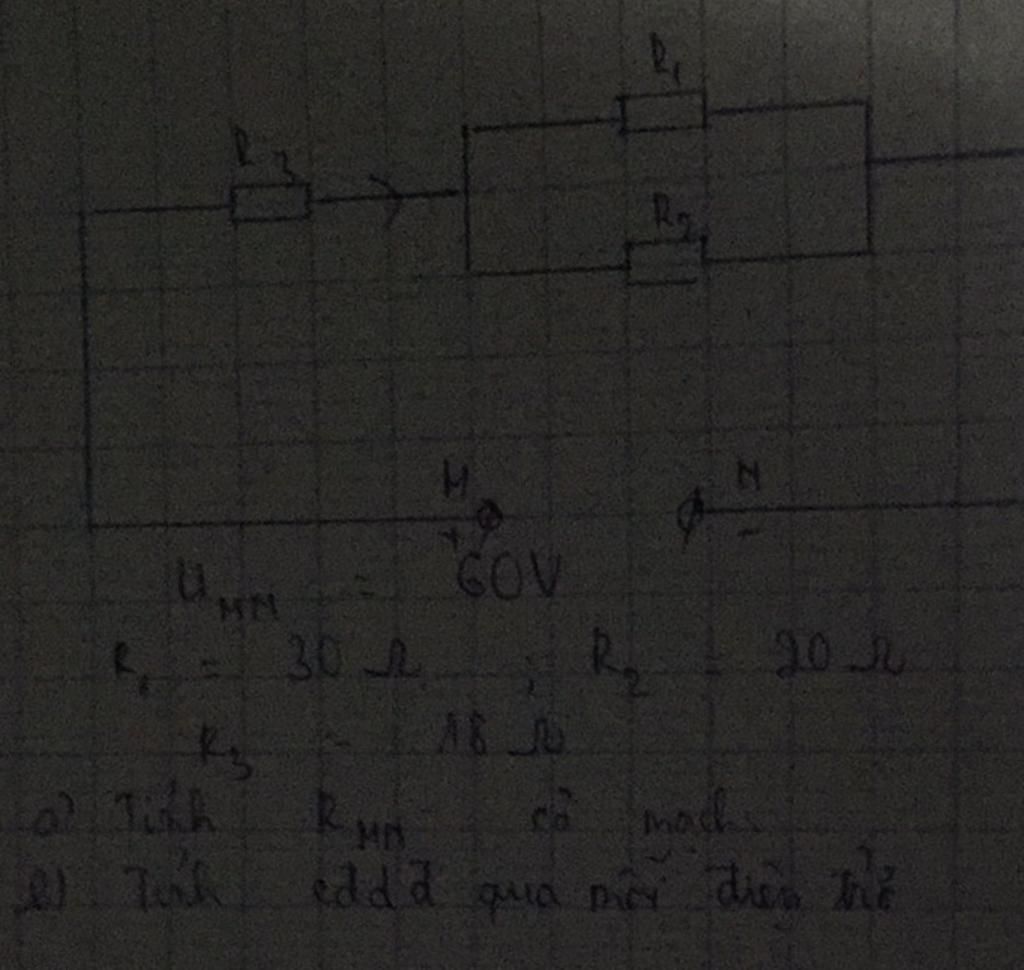 R1
R3
R2
M N
+ -
UMN = 60V
R1 = 30 Ω ; R2 = 20 Ω
R3 = 18 Ω
a) Tính RMN cả mạch.
b) Tính cđdđ qua mỗi điện trở